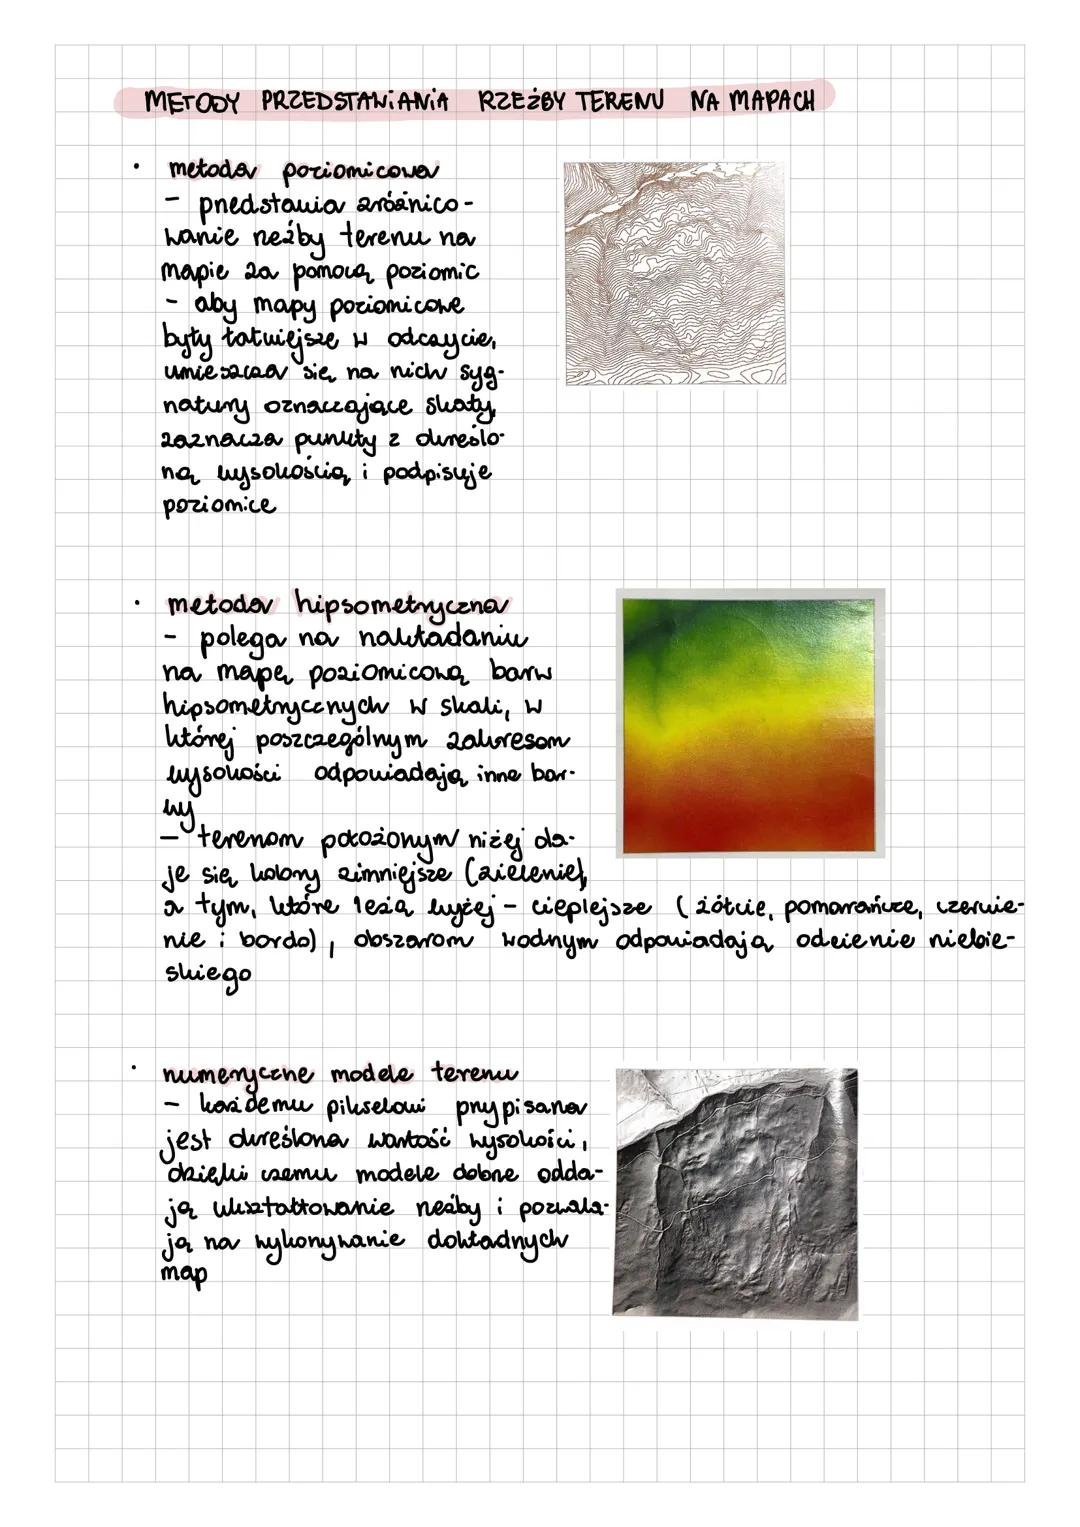 METODY PRZEDSTAWIANIA RZEŹBY TERENU NA MAPACH
• metoda poziomicowa
- przedstawia zróżnico-
wanie rzeźby terenu na
mapie za pomocą poziomic
- aby mapy poziomicowe
były łatwiejsze w odczycie,
umieszcza się na nich syg-
natury oznaczające skały,
zaznacza punkty z określo-
ną wysokością i podpisuje
poziomice
• metoda hipsometryczna
- polega na nakładaniu
na mapę poziomicową barw
hipsometrycznych w skali, w
której poszczególnym zakresom
wysokości odpowiadają inne bar-
wy
- terenom położonym niżej da-
je się kolory zimniejsze (zielenie),
a tym, które leżą wyżej - cieplejsze (żółcie, pomarańcze, czerwie-
nie i bordo), obszarom wodnym odpowiadają odcienie niebie-
skiego
• numeryczne modele terenu
- każdemu pikselowi przypisana
jest określona wartość wysokości,
dzięki czemu modele dobrze odda-
ją ukształtowanie rzeźby i pozwala-
ją na wykonywanie dokładnych
map